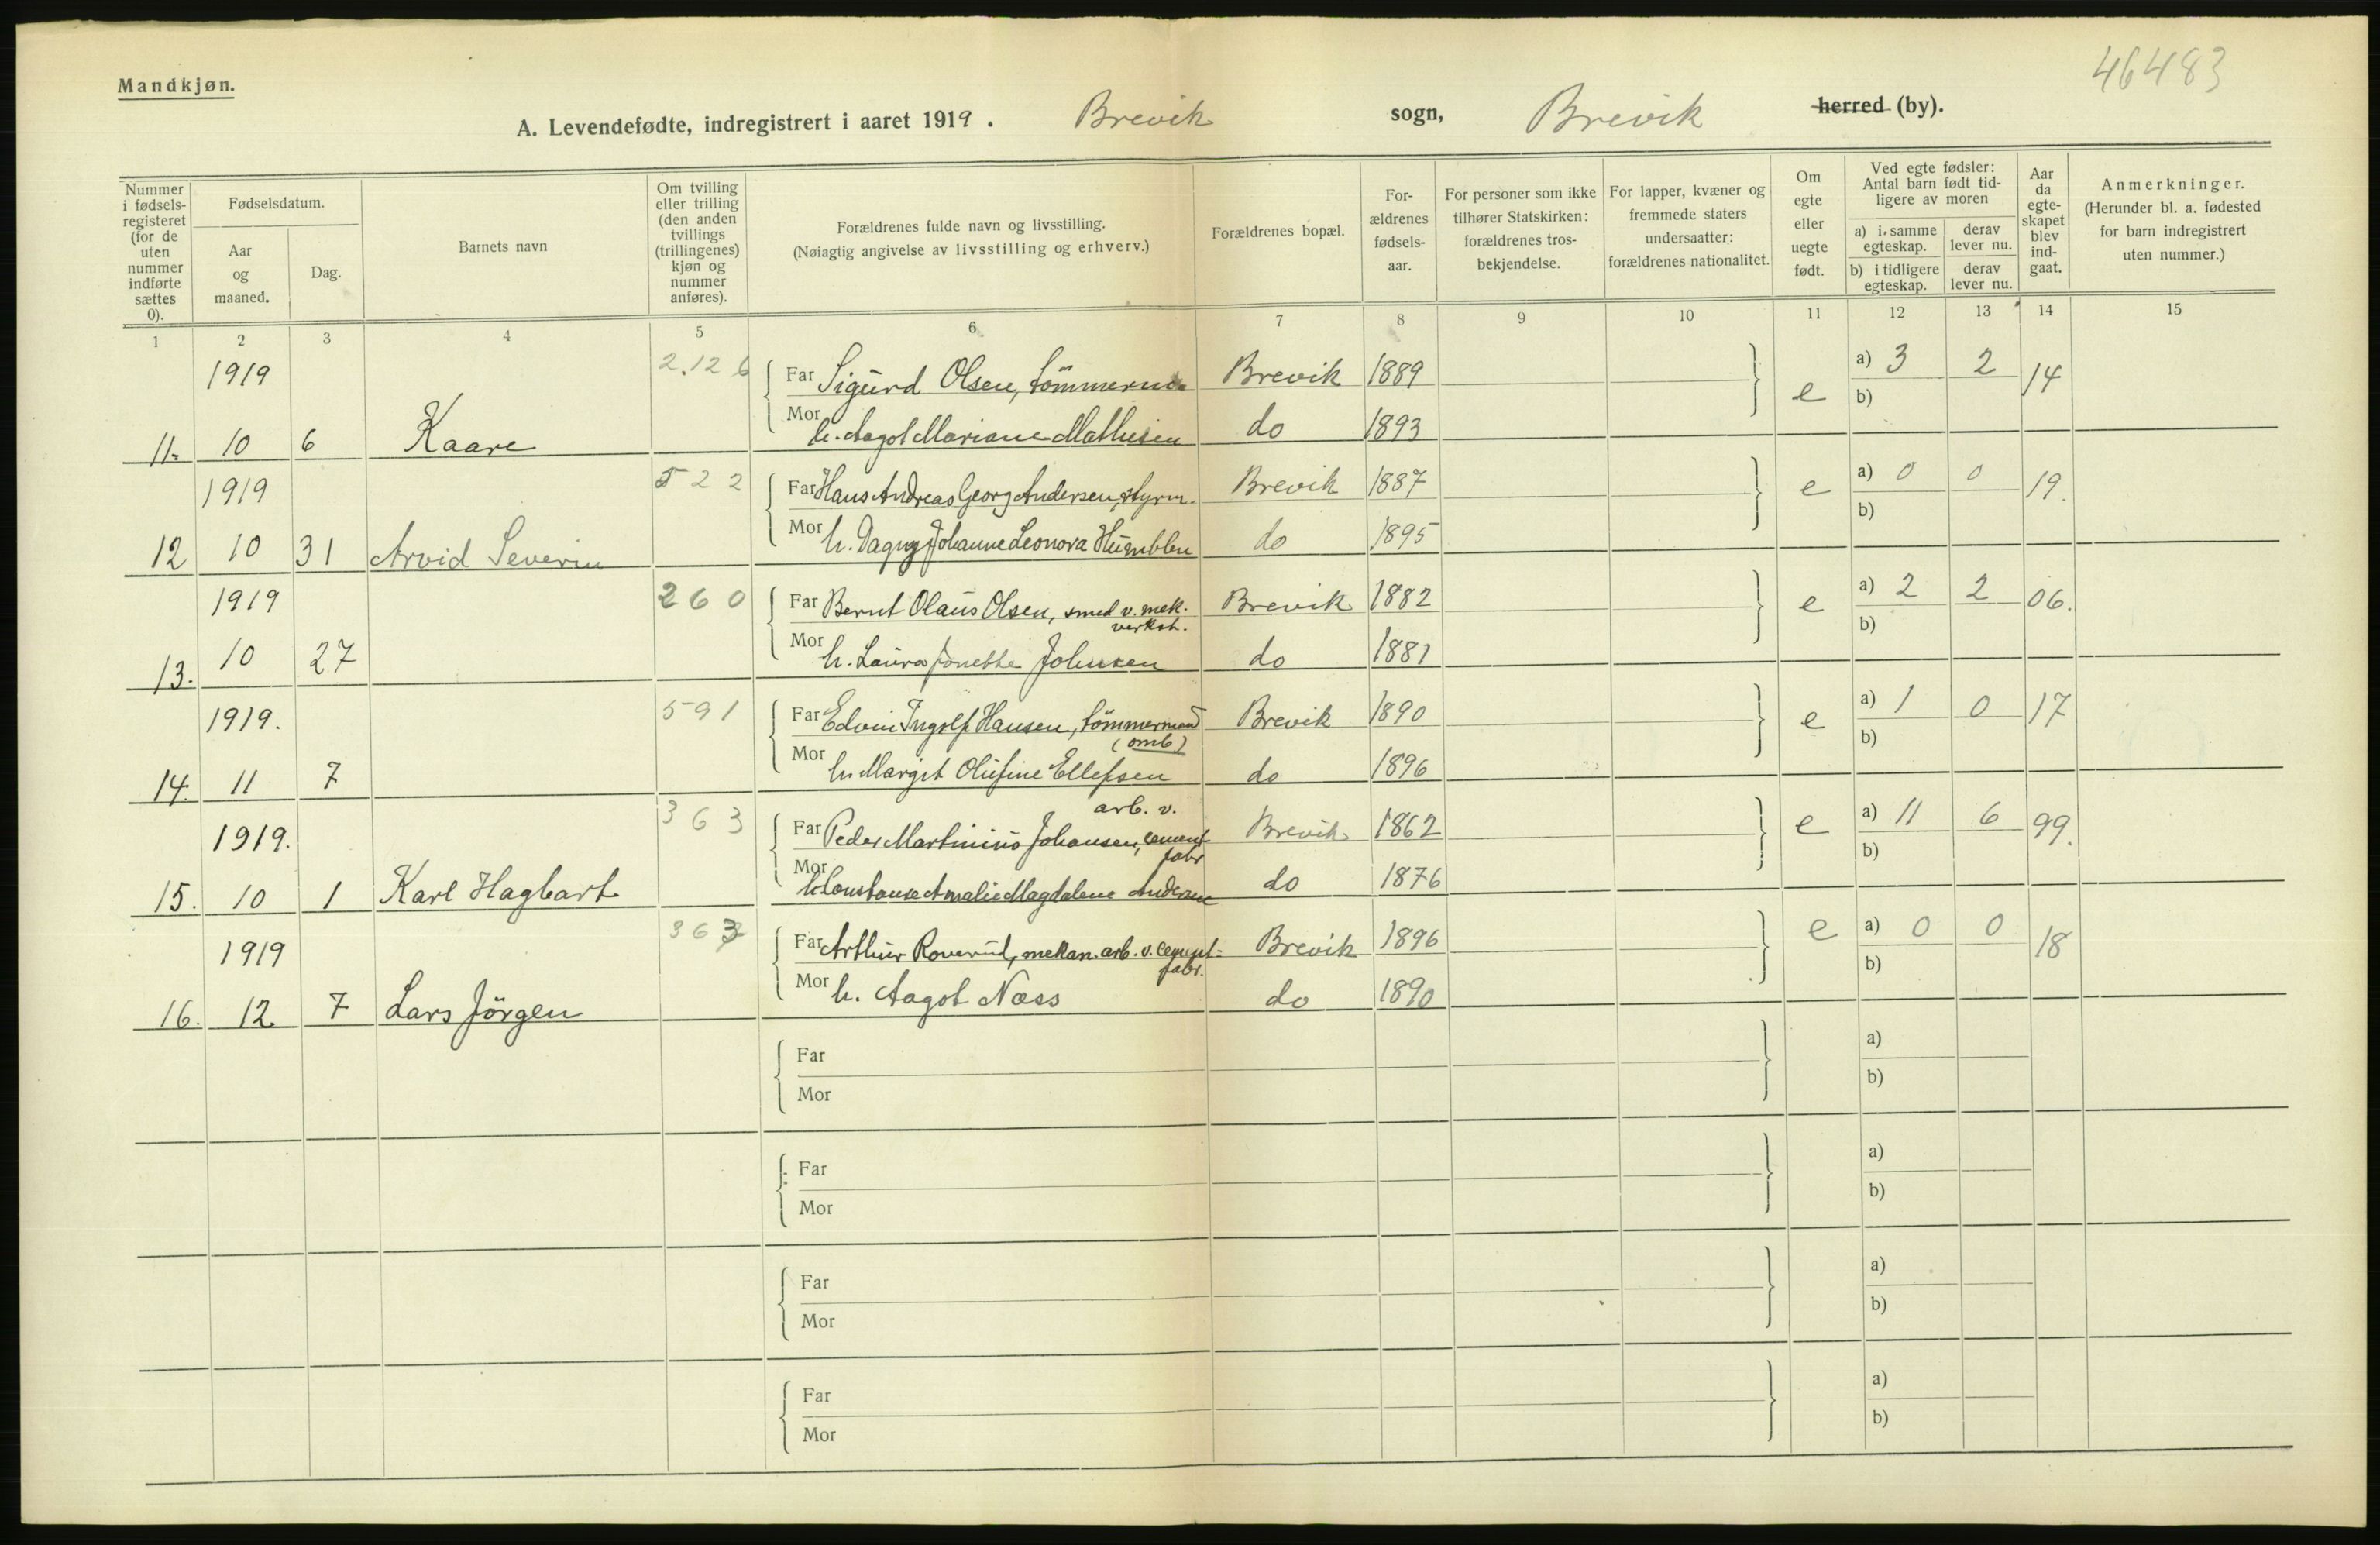 46483
Mandkjøn.
A. Levendefødte, indregistrert i aaret 1919. Brevik sogn, Brevik herred (by).
Nummer i fødsels-registeret (for de uten nummer indførte sættes 0).
Fødselsdatum.
Aar og maaned.
Dag.
Barnets navn
Om tvilling eller trilling (den anden tvillings (trillingenes) kjøn og nummer anføres).
Forældrenes fulde navn og livsstilling.
(Nøiagtig angivelse av livsstilling og erhverv.)
Forældrenes bopæl.
For-ældrenes fødsels-aar.
For personer som ikke tilhører Statskirken: forældrenes tros-bekjendelse.
For lapper, kvæner og fremmede staters undersaatter: forældrenes nationalitet.
Om egte eller uegte født.
Ved egte fødsler: Antal barn født tid-ligere av moren
a) i samme egteskap.
derav lever nu.
b) i tidligere egteskap.
derav lever nu.
Aar da egte-skapet blev ind-gaat.
Anmerkninger.
(Herunder bl. a. fødested for barn indregistrert uten nummer.)
1 2 3 4 5 6 7 8 9 10 11 12 13 14 15
1919 2.126 Far Sigurd Olsen, Brevik 1889 e a) 3 2 14
b)
11. 10 6 Kaare Mor h. Aagot Mariane Mathisen do 1893
1919 522 Far Hans Andreas Georg Andersen, styrm. Brevik 1887 e a) 0 0 19.
b)
12 10 31 Arvid Severin Mor h. Dagny Johanne Leonora Humblen do 1895
1919 260 Far Bernt Olaus Olsen, smed v. mek. verkst. Brevik 1882 e a) 2 2 06.
b)
13. 10 27 Mor h. Laura Jonette Johnsen do 1881
1919. 591 Far Edvin Ingolf Hansen, tömmermand (omb) Brevik 1890 e a) 1 0 17
b)
14. 11 7 Mor h. Margit Olufine Ellefsen do 1896
1919. 363 Far Peder Martinius Johansen, arb. v. cement fabr Brevik 1862 e a) 11 6 99.
b)
15. 10 1 Karl Hagbart Mor h. Constanse Amalie Magdalene Andersen do 1876
1919 363 Far Arthur Roverud, mekan. arb. v. cement-fabr. Brevik 1896 e a) 0 0 18
b)
16. 12. 7 Lars Jörgen Mor h. Aagot Næss do 1890
Far a)
Mor b)
Far a)
Mor b)
Far a)
Mor b)
Far a)
Mor b)